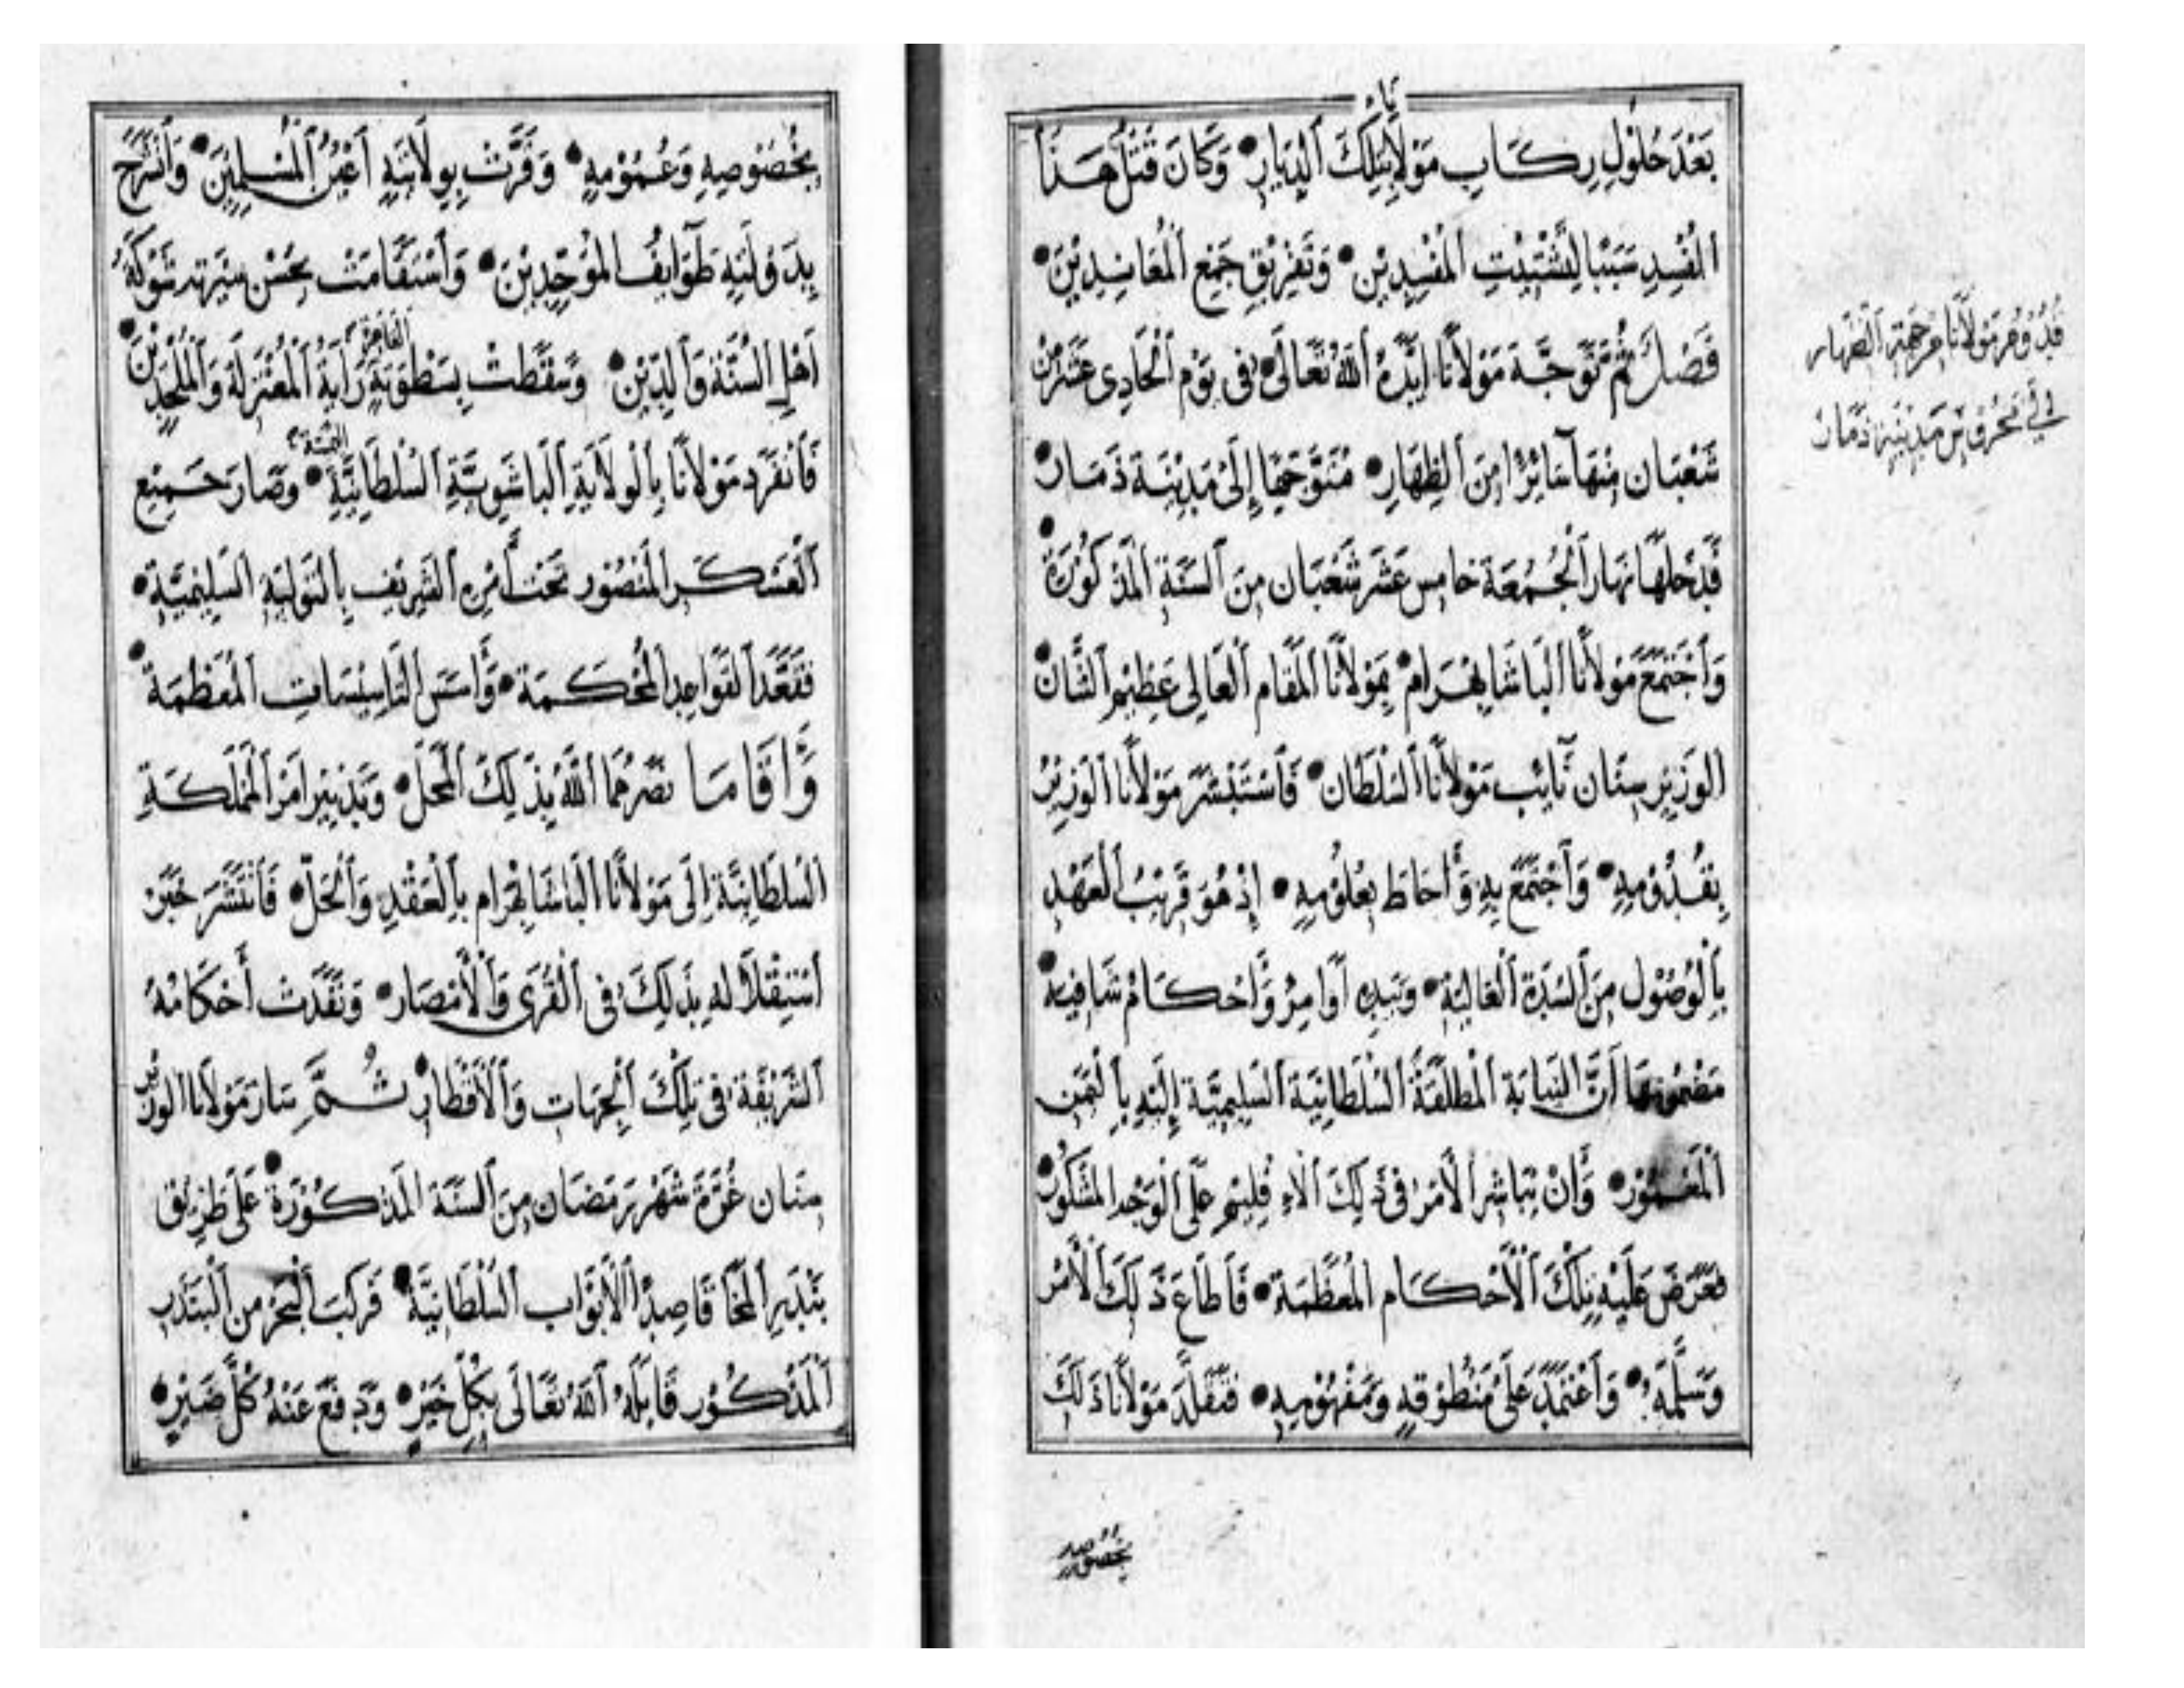 بَعْدَ حُلُوْلِ رِكَابِ مَوْلَانَا بِتِلْكَ الدِّيَارِ وَكَانَ قَتْلُ هَذَا
الْمُفْسِدِ سَبَبًا لِتَشْتِيْتِ الْمُفْسِدِيْن وَتَفْرِيْقِ جَمْعِ الْمُعَانِدِيْنَ
فَصْلٌ ثُمَّ تَوَجَّهَ مَوْلَانَا اَيَّدَهُ اللّٰهُ تَعَالَى فِى يَوْمِ الْحَادِى عَشَرَ مِنْ
شَعْبَان مِنْهَا سَائِرًا مِنَ الظِهَارِ مُتَوَجِّهًا إِلَى مَدِيْنَةِ ذَمَار
فَدَخَلَهَا نَهَارَ الْجُمُعَة خَامِسَ عَشَرَ شَعْبَان مِنَ السَّنَةِ الْمَذْكُوْرَةِ
وَاجْتَمَعَ مَوْلَانَا الْبَاشَا بَهْرَام بِمَوْلَانَا الْمَقَامِ الْعَالِى عَظِيْمِ الشَّان
الوَزِيْر سِنَان نَائِبِ مَوْلَانَا السُّلْطَان فَاسْتَبْشَرَ مَوْلَانَا الْوَزِيْرُ
بِقُدُوْمِهِ وَاجْتَمَعَ بِهِ وَأَحَاطَ بِعُلُوْمِهِ إِذْ هُوَ قَرِيْبُ الْعَهْدِ
بِالْوُصُوْلِ مِنَ السُّدَّةِ الْعَالِيَةِ وَبِيَدِهِ أَوَامِرُ وَأَحْكَامٌ شَافِيَة
مَضْمُونُهَا اَنَّ النِّيَابَة الْمُطْلَقَةَ السُّلْطَانِيَّة السَّلِيْمِيَّة إِلَيْهِ بِالْيَمَنِ
الْمَعْمُوْر وَأَنْ يُبَاشِرَ الْأَمْرَ فِى ذَلِكَ الْاِقْلِيْمِ عَلَى الْوَجْهِ الْمَشْكُوْر
فَعَرَضَ عَلَيْهِ تِلْكَ الْأَحْكَام الْمُعَظَّمَة فَأَطَاعَ ذَلِكَ الْأَمْرَ
وَسَلَّمَهُ وَاعْتَمَدَ عَلَى مَنْطُوْقِهِ وَمَفْهُوْمِهِ فَتَقَلَّدَ مَوْلَانَا ذَلِكَ
بخصوصه
قدوم مولانا من جهة الظهار
الى نحو مدينة ذمار
بِخُصُوْصِهِ وَعُمُوْمِهِ وَقَرَّتْ بِوِلَايَتِهِ أَعْيُنُ الْمُسْلِمِيْنَ وَانْشَرَحَ
بِدَوْلَتِهِ طَوَائِفُ الْمُوَحِّدِيْنَ وَاسْتَقَامَتْ بِحُسْنِ سِيْرَتِهِ شَوْكَةُ
اَهْلِ السُّنَّةِ وَالدِّيْنِ وَسَقَطَتْ بِسَطْوَتِهِ الْقَاهِرَةِ رَايَةُ الْمُعْتَزِلَةِ وَالْمُلْحِدِيْنَ
فَانْفَرَدَ مَوْلَانَا بِالْوِلَايَةِ الْبَاشَوِيَّةِ السُّلْطَانِيَّةِ وَصَارَ جَمِيْع
الْعَسْكَرِ الْمَنْصُوْر تَحْتَ أَمْرِهِ الشَّرِيْفِ بِالتَّوْلِيَةِ السَّلِيْمِيَّةِ
فَقَعَّدَ الْقَوَاعِدَ الْمُحْكَمَة وَأَسَّسَ التَّاسِيْسَاتِ الْمُعَظَّمَة
وَأَقَامَا نَصَرَهُمَا اللّٰهُ بِذَلِكَ الْمَحَلّ وَتَدْبِيْر اَمْرِ الْمَمْلَكَةِ
السُّلْطَانِيَّةِ اِلَى مَوْلَانَا الْبَاشَا بَهْرَام بِالْعَقْدِ وَالْحَلّ فَانْتَشَرَ خَبَرُ
اسْتِقْلَالِهِ بِذَلِكَ فِى الْقُرَى وَالْأَمْصَار وَنَفَذَتْ أَحْكَامُهُ
الشَّرِيْفَة فِى تِلْكَ الْجِهَاتِ وَالْأَقْطَارِ ثُمَّ سَارَ مَوْلَانَا الوَزِيْر
سِنَان غُرَّةَ شَهْرِ رَمَضَان مِنَ السَّنَةِ الْمَذْكُوْرَة عَلَى طَرِيْق
بَنْدَرِ الْمَخَا قَاصِدًا الْأَبْوَاب السُّلْطَانِيَّة فَرَكِبَ الْبَحْرَ مِنَ الْبَنْدَرِ
الْمَذْكُوْر قَابَلَهُ اللّٰهُ تَعَالَى بِكُلِّ خَيْرٍ وَدَفَعَ عَنْهُ كُلَّ ضَيْرٍ